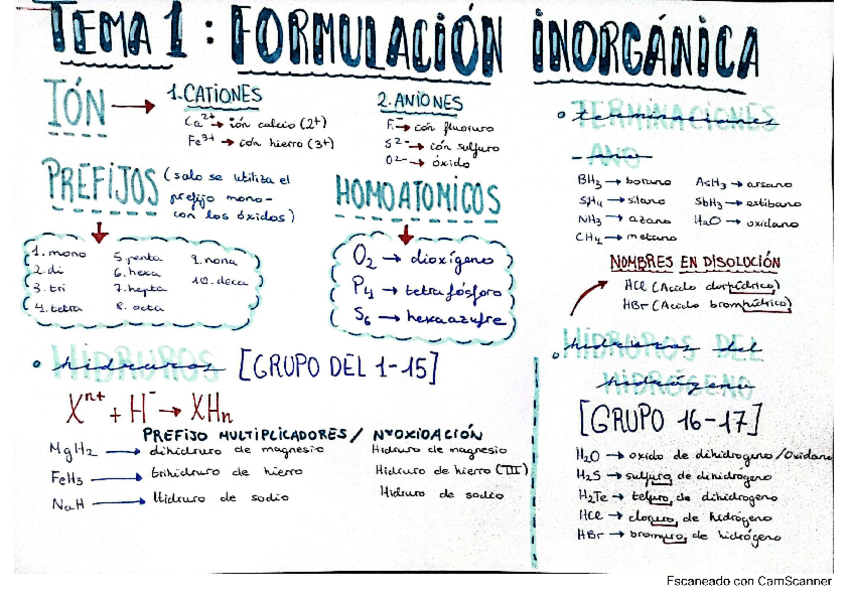 TEMA 1 : FORMULACIÓN INORGÁNICA
IÓN →
1. CATIONES
Ca²⁺ → ión calcio (2+)
Fe³⁺ → ión hierro (3+)
2. ANIONES
F⁻ → ión fluoruro
S²⁻ → ión sulfuro
O²⁻ → óxido
PREFIJOS (solo se utiliza el
prefijo mono-
con los óxidos)
1. mono
2. di
3. tri
4. tetra
5. penta
6. hexa
7. hepta
8. octa
9. nona
10. deca
HOMOATOMICOS
O₂ → dioxígeno
P₄ → tetrafósforo
S₆ → hexaazufre
TERMINACIONES
terminaciones
-ANO
-ano
BH₃ → borano
SiH₄ → silano
NH₃ → azano
CH₄ → metano
AsH₃ → arsano
SbH₃ → estibano
H₂O → oxidano
NOMBRES EN DISOLUCIÓN
HCl (Acido clorhídrico)
HBr (Acido bromhídrico)
HIDRUROS
hidruros [GRUPO DEL 1-15]
Xⁿ⁺ + H⁻ → XHn
PREFIJO MULTIPLICADORES / NºOXIDACIÓN
MgH₂ → dihidruro de magnesio Hidruro de magnesio
FeH₃ → trihidruro de hierro Hidruro de hierro (III)
NaH → Hidruro de sodio Hidruro de sodio
HIDRUROS DEL
hidruros del
HIDRÓGENO
hidrógeno
[GRUPO 16-17]
H₂O → oxido de dihidrogeno / Oxidano
H₂S → sulfuro de dihidrogeno
H₂Te → teluro de dihidrogeno
HCl → cloruro de hidrógeno
HBr → bromuro de hidrógeno
Escaneado con CamScanner